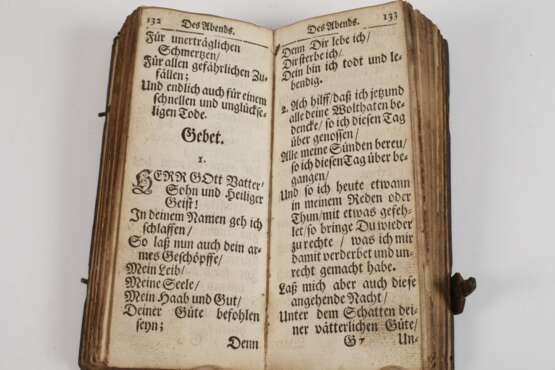 132
Des Abends.
Für unerträglichen
Schmertzen/
Für allen gefährlichen Zu-
fällen;
Und endlich auch für einem
schnellen und unglückse-
ligen Tode.
Gebet.
1.
HERR GOtt Vatter/
Sohn und Heiliger
Geist!
In deinem Namen geh ich
schlaffen/
So laß nun auch dein ar-
mes Geschöpffe/
Mein Leib/
Meine Seele/
Mein Haab und Gut/
Deiner Güte befohlen
seyn;
Denn
Des Abends.
133
Denn Dir lebe ich/
Dir sterbe ich/
Dein bin ich todt und le-
bendig.
2. Ach hilff/ daß ich jetzund
alle deine Wolthaten be-
dencke/ so ich diesen Tag
über genossen/
Alle meine Sünden bereu/
so ich diesen Tag über be-
gangen/
Und so ich heute etwann
in meinem Reden oder
Thun/ mit etwas gefeh-
let/ so bringe Du wieder
zu rechte / was ich mir
damit verderbet und un-
recht gemacht habe.
Laß mich aber auch diese
angehende Nacht/
Unter dem Schatten dei-
ner vätterlichen Güte/
Un-